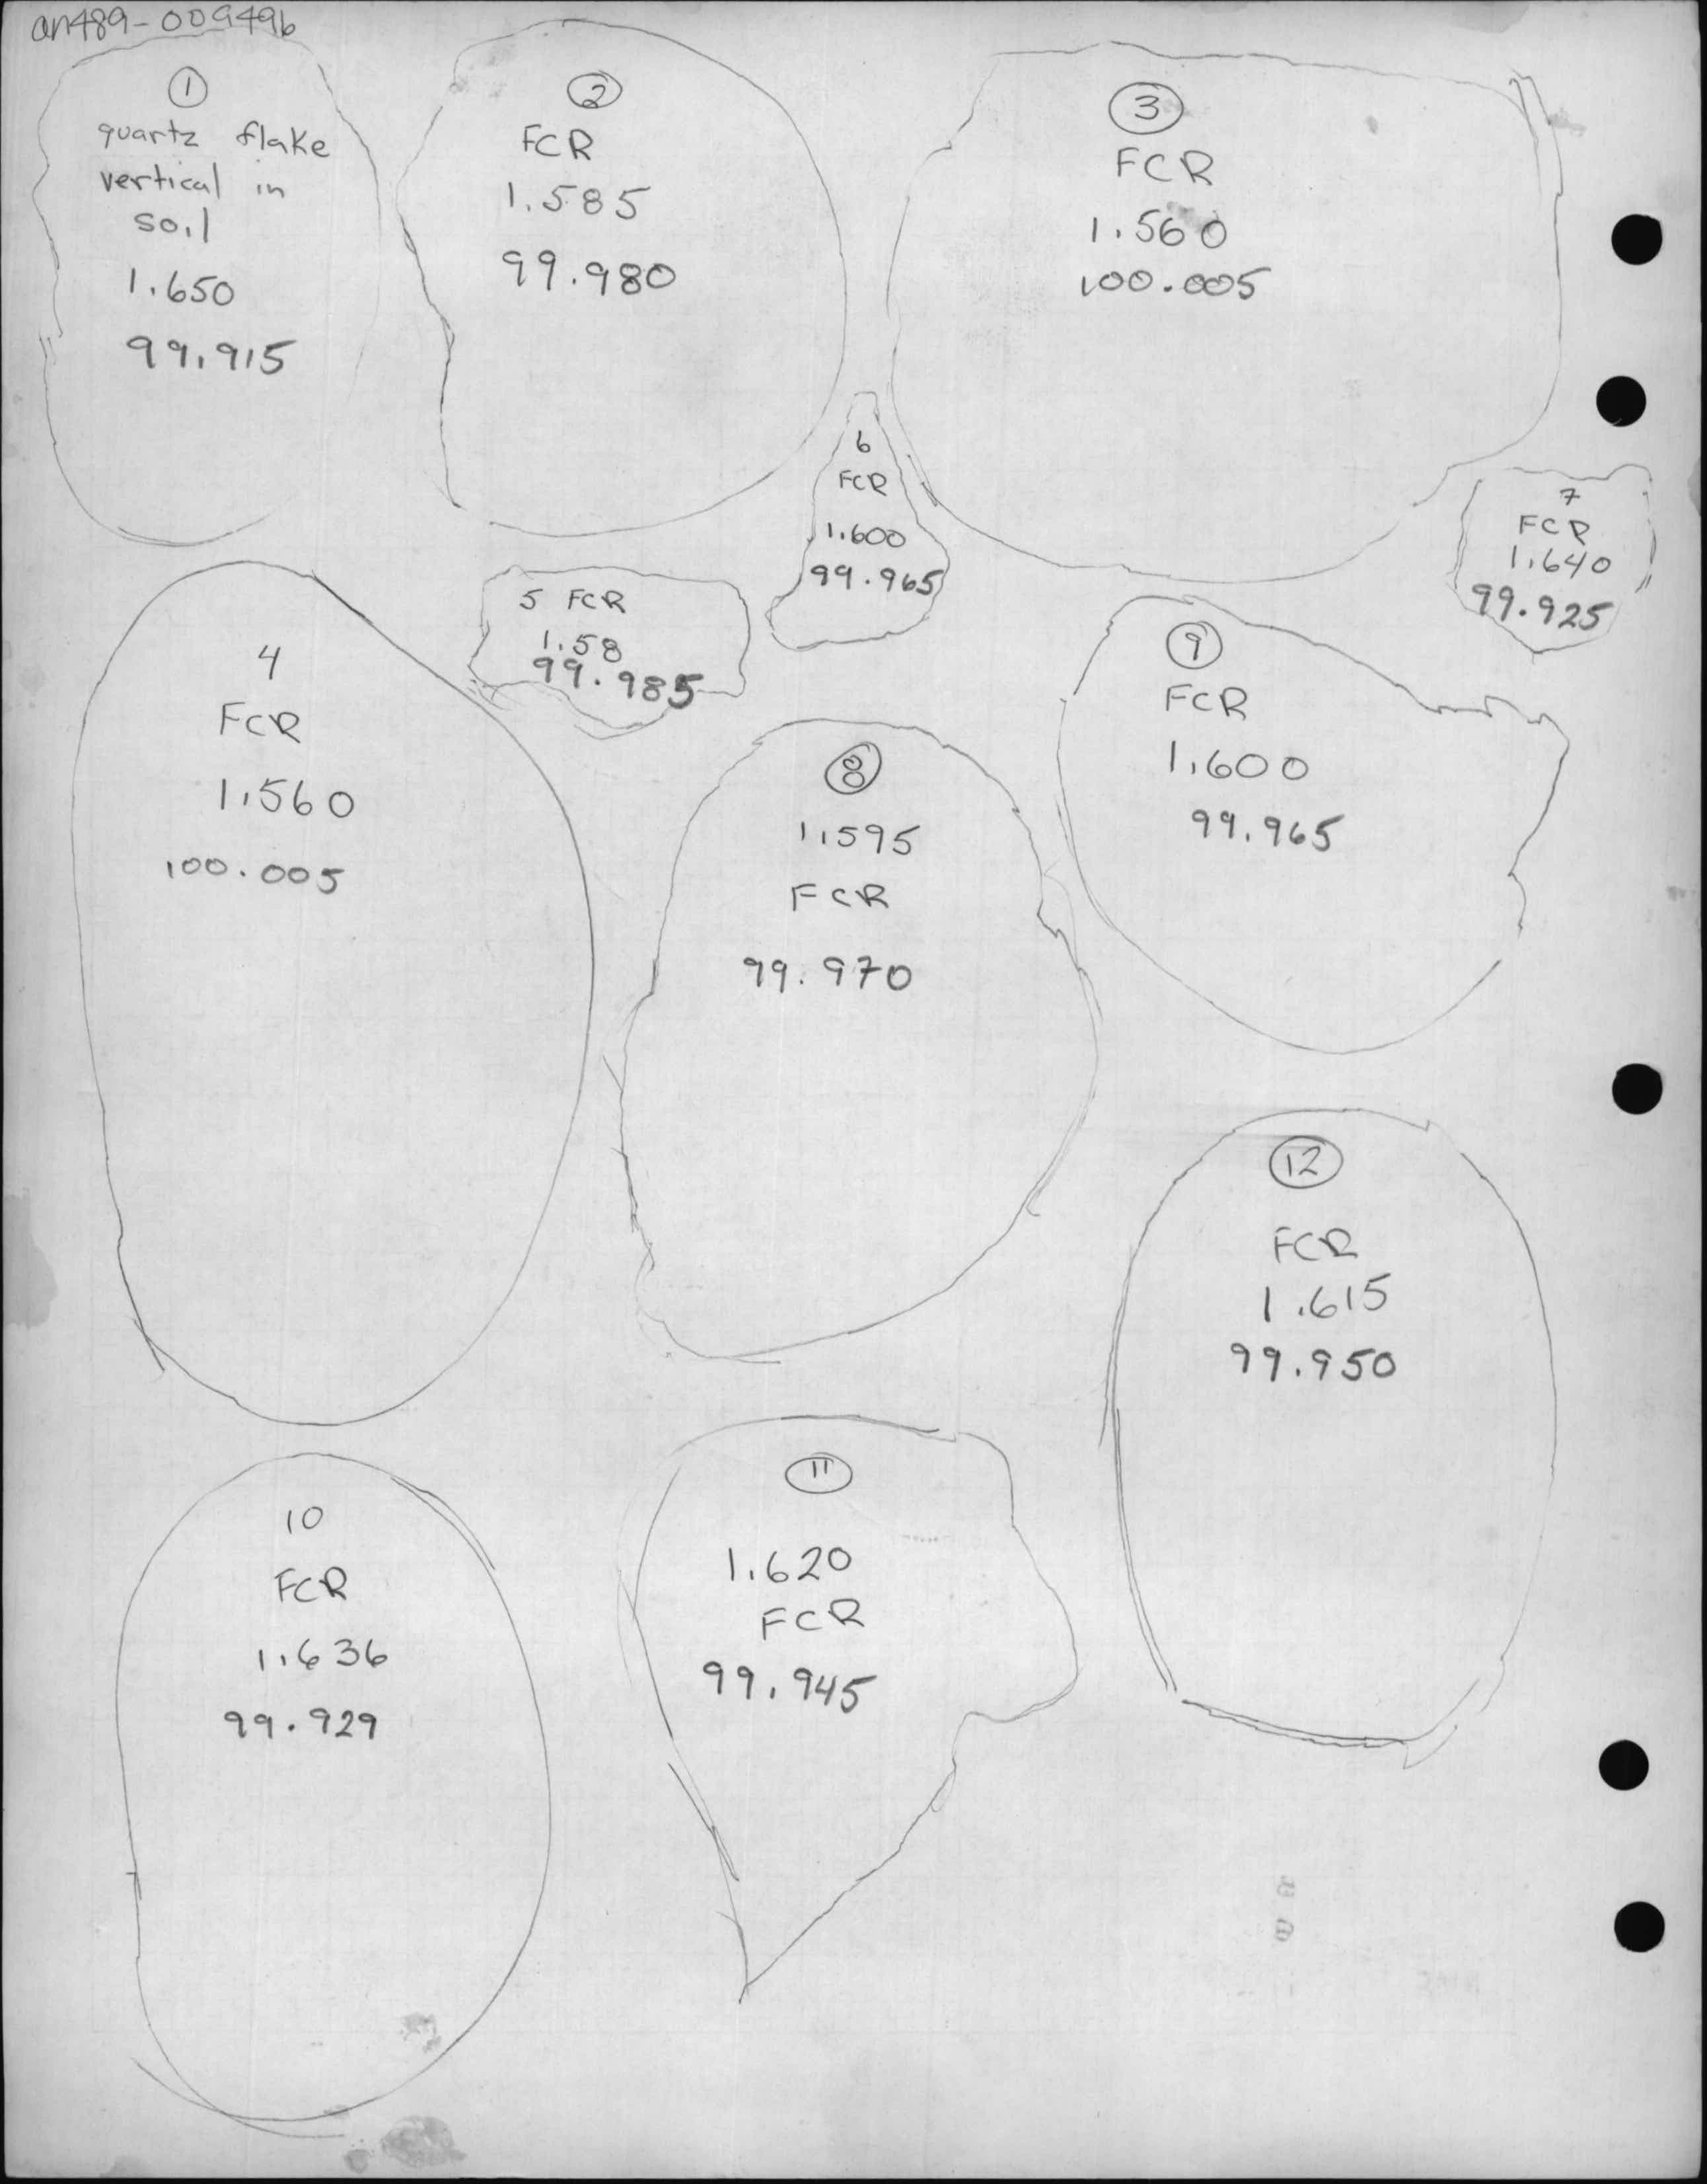 an489-009496
1
quartz flake
vertical in
soil
1.650
99.915
2
FCR
1.585
99.980
3
FCR
1.560
100.005
6
FCR
1.600
99.965
7
FCR
1.640
99.925
4
FCR
1.560
100.005
5 FCR
1.58
99.985
8
1.595
FCR
99.970
9
FCR
1.600
99.965
12
FCR
1.615
99.950
10
FCR
1.636
99.929
11
1.620
FCR
99.945